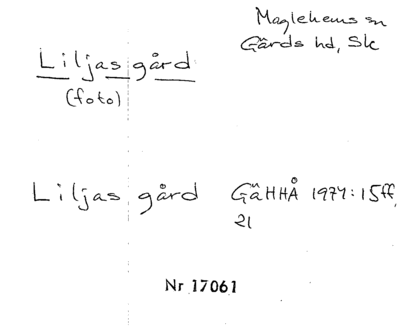 Maglehems sn
Gärds hd, Sk
Liljas gård
(foto)
Liljas gård GäHHÅ 1974:15ff,
21
Nr 17061